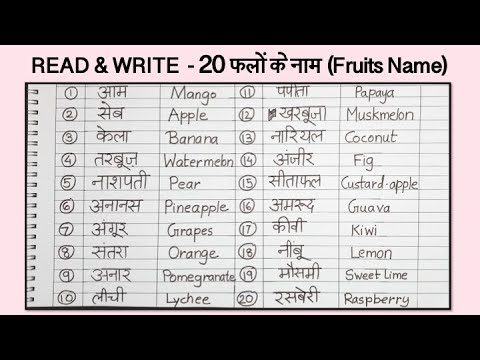 READ & WRITE - 20 फलों के नाम (Fruits Name)
① आम Mango ⑪ पपीता Papaya
② सेब Apple ⑫ खरबूजा Muskmelon
③ केला Banana ⑬ नारियल Coconut
④ तरबूज़ Watermelon ⑭ अंजीर Fig
⑤ नाशपती Pear ⑮ सीताफल Custard-apple
⑥ अनानस Pineapple ⑯ अमरूद Guava
⑦ अंगूर Grapes ⑰ कीवी Kiwi
⑧ संतरा Orange ⑱ नींबू Lemon
⑨ अनार Pomegranate ⑲ मौसमी Sweet Lime
⑩ लीची Lychee ⑳ रसबेरी Raspberry